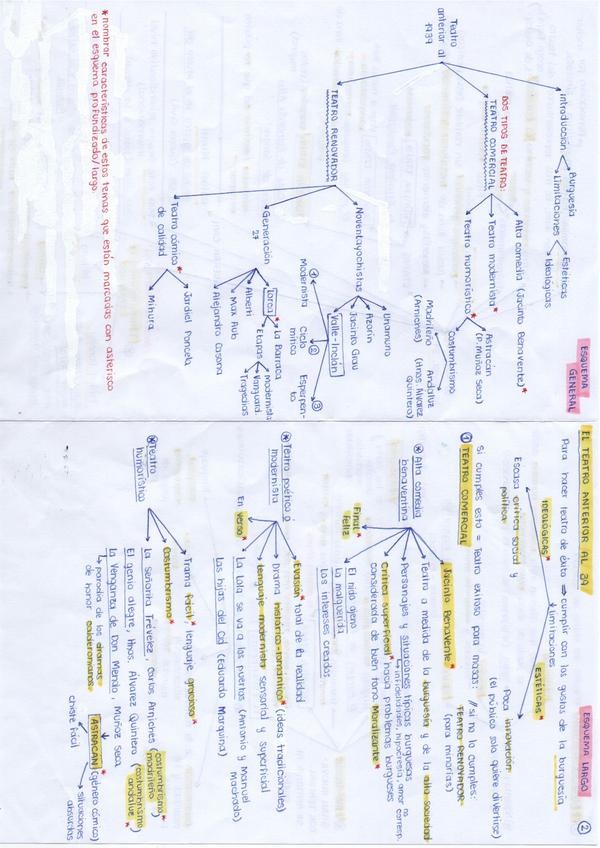 ESQUEMA
GENERAL
Teatro
anterior al
1939
introducción
Burguesía
Limitaciones
Estéticas
Ideológicas
DOS TIPOS DE TEATRO:
TEATRO COMERCIAL
Alta comedia (Jacinto Benavente)*
Teatro modernista*
Teatro humorístico*
Astracán
(P. Muñoz Seca)
Costumbrismo
Madrileño
(Arniches)
Andaluz
(Hnos Álvarez
Quintero)
TEATRO RENOVADOR
Noventayochistas
Unamuno
Azorín
Jacinto Grau
Valle-Inclán
① Modernista
② Ciclo
mítico
③ Esperpen-
to
Generación
27
Lorca*
La Barraca
Etapas
Modernista
Vanguard.
Tragedias
Alberti
Max Aub
Alejandro Casona
Teatro cómico*
de calidad
Jardiel Poncela
Mihura
*nombrar características de estos temas que están marcadas con asterisco
en el esquema profundizado/largo.
EL TEATRO ANTERIOR AL 39
ESQUEMA LARGO
②
Para hacer teatro de éxito ⇒ cumplir con los gustos de la burguesía
Limitaciones
IDEOLÓGICAS*
ESTÉTICAS*
Escasa crítica social y
política*
Poca innovación
(el público solo quiere divertirse)
Si cumples esto = Teatro exitoso para masas: // si no lo cumples:
TEATRO RENOVADOR
(para minorías)
① TEATRO COMERCIAL
* Alta comedia
benaventina
Jacinto Benavente*
Teatro a medida de la burguesía y de la alta sociedad
Personajes y situaciones típicas burguesas
infidelidades, hipocresía, amor no
corresp.
Crítica superficial* hacia problemas burgueses
considerada de buen tono. Moralizante*
Final*
feliz
El nido ajeno
La malquerida
Los intereses creados
* Teatro poético o
modernista
Evasión* total de la realidad
Drama histórico-romántico* (ideas tradicionales)
Lenguaje modernista sensorial y superficial
En verso*
La Lola se va a los puertos (Antonio y Manuel
Machado)
Las hijas del Cid (Eduardo Marquina)
* Teatro
humorístico
Trama fácil*, lenguaje gracioso*
Costumbrismo*
La señorita Trévelez, Carlos Arniches (costumbrismo
madrileño)
El genio alegre, Hnos. Álvarez Quintero (costumbrismo
andaluz)
La Venganza de Don Mendo, Muñoz Seca
parodia de los dramas
de honor calderonianos
ASTRACÁN* (género cómico)
chiste fácil
situaciones
absurdas